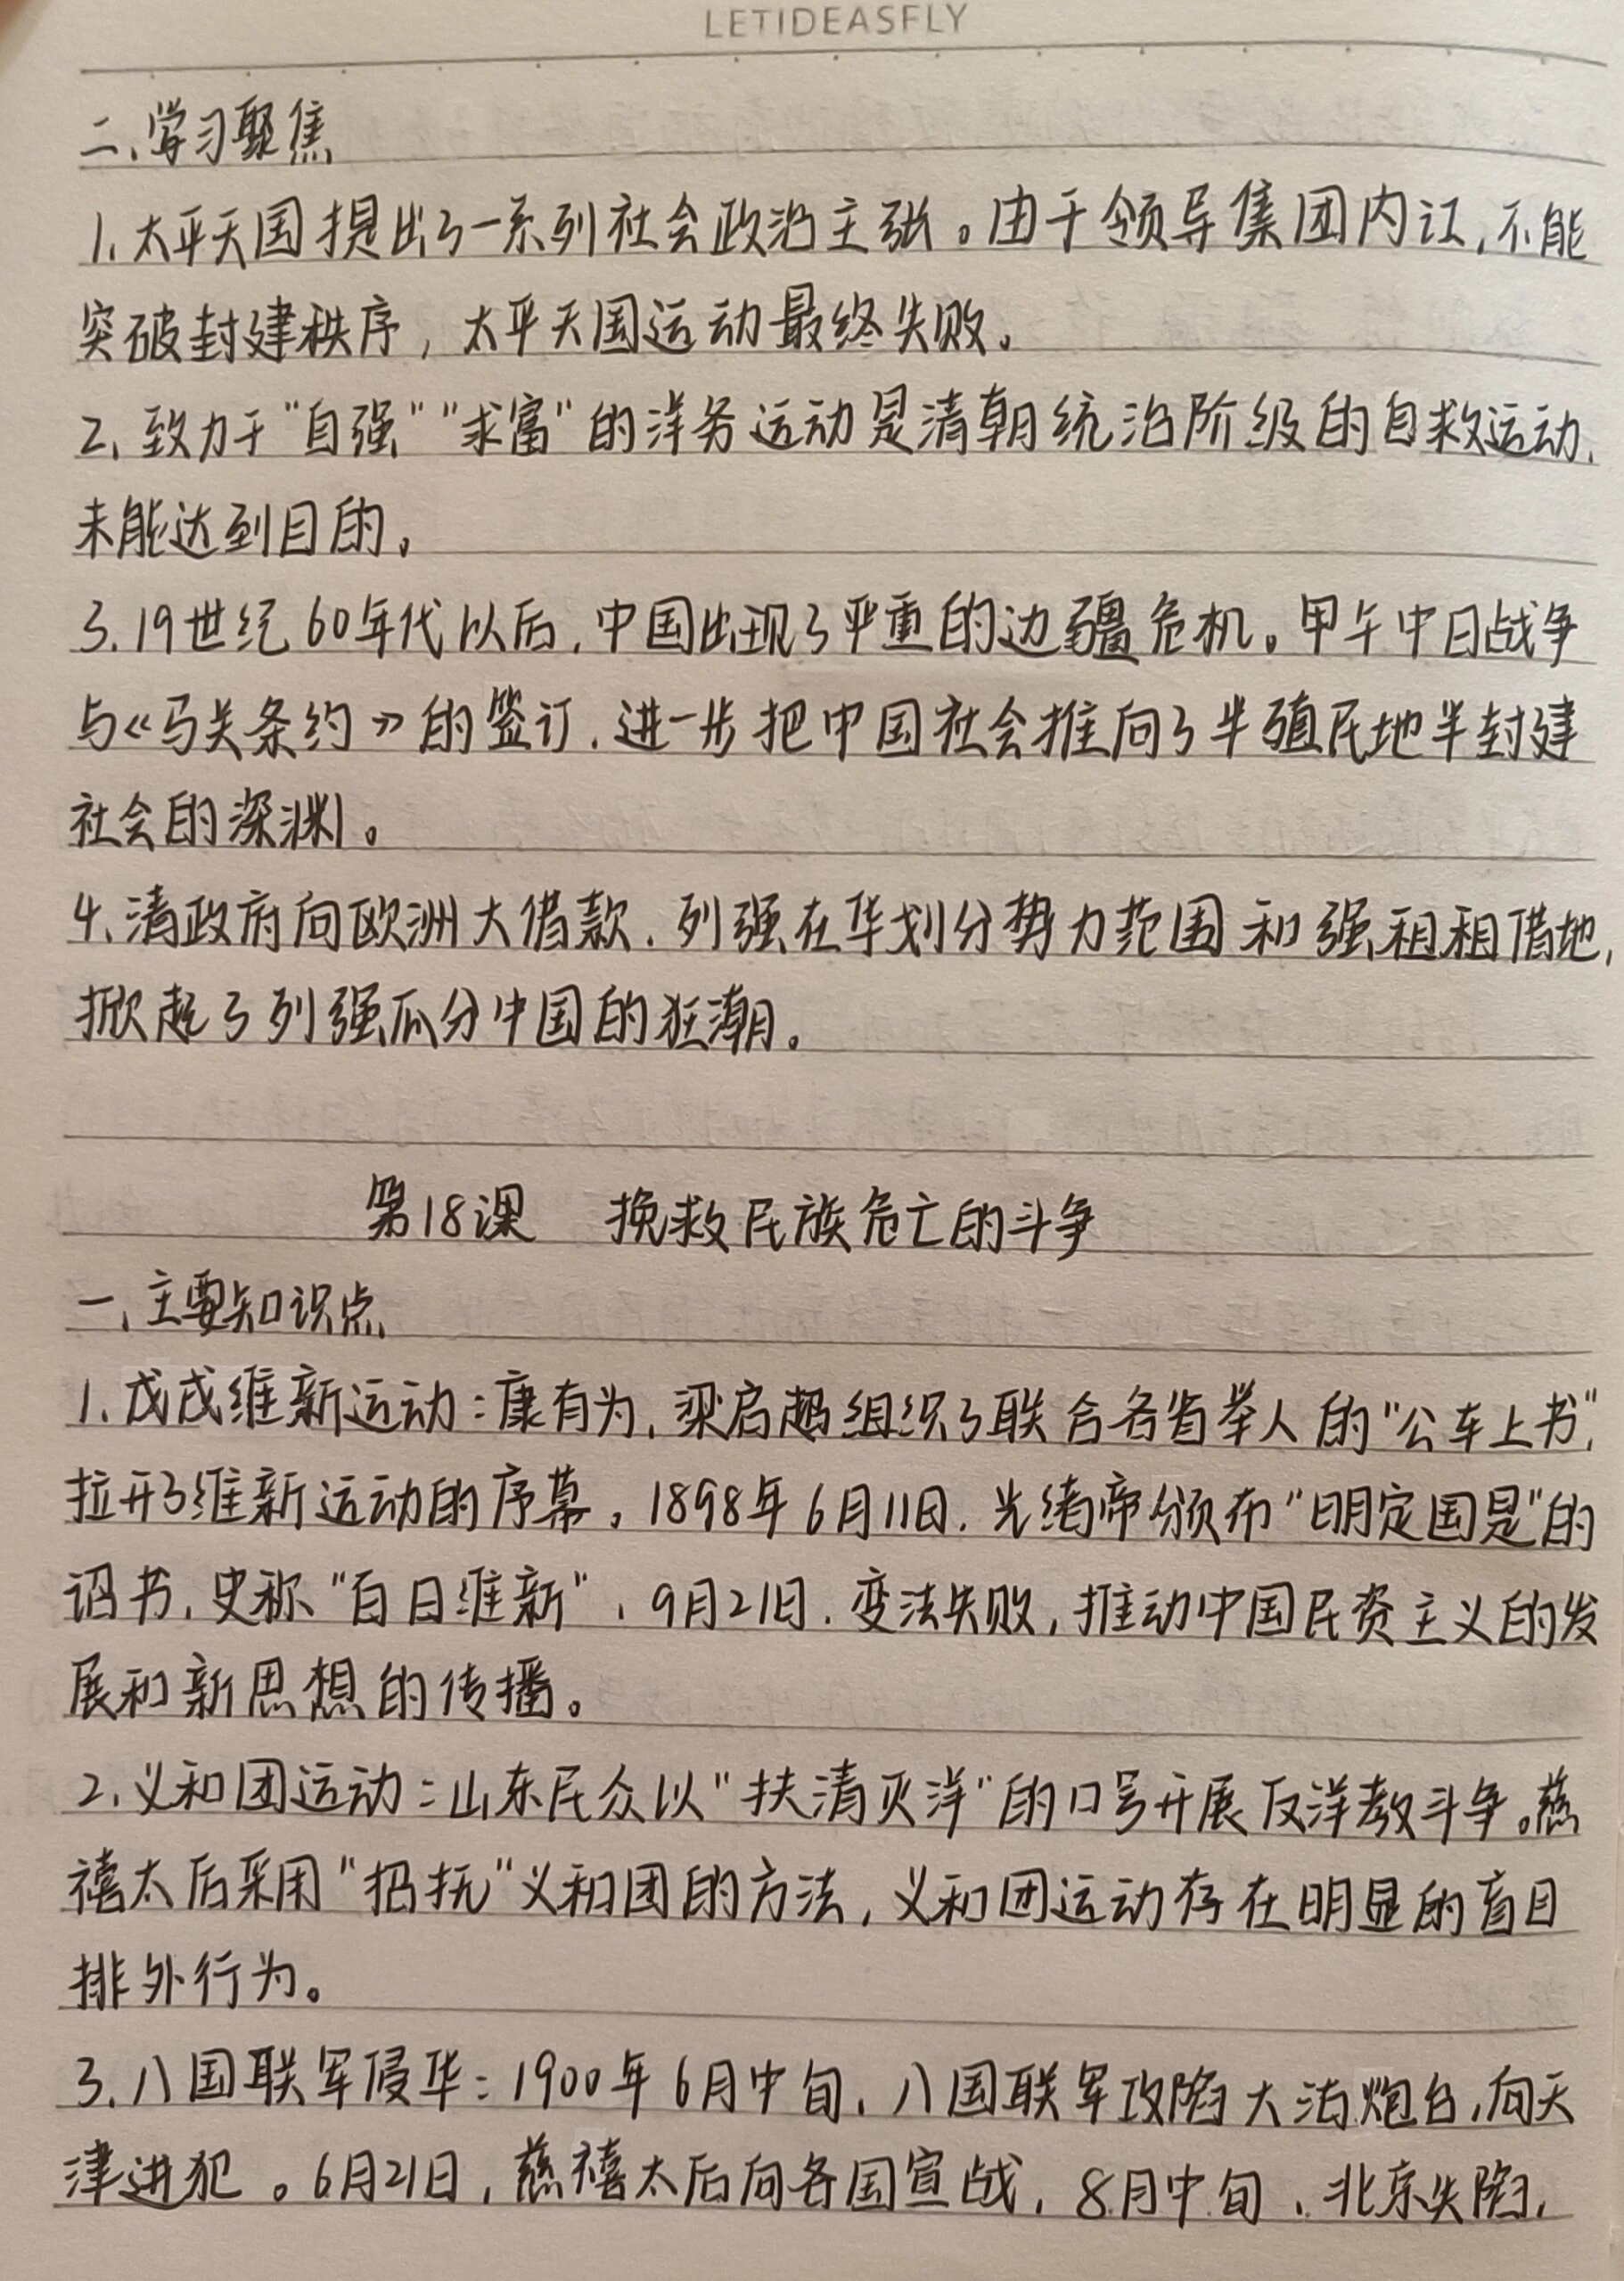 LETIDEASFLY
二、学习聚焦
1.太平天国提出了一系列社会政治主张。由于领导集团内讧,不能
突破封建秩序,太平天国运动最终失败。
2.致力于"自强""求富"的洋务运动是清朝统治阶级的自救运动,
未能达到目的。
3.19世纪60年代以后,中国出现了严重的边疆危机。甲午中日战争
与《马关条约》的签订,进一步把中国社会推向了半殖民地半封建
社会的深渊。
4.清政府向欧洲大借款,列强在华划分势力范围和强租租借地,
掀起了列强瓜分中国的狂潮。
第18课 挽救民族危亡的斗争
一、主要知识点
1.戊戌维新运动:康有为,梁启超组织了联合各省举人的"公车上书",
拉开了维新运动的序幕。1898年6月11日,光绪帝颁布"明定国是"的
诏书,史称"百日维新",9月21日,变法失败,推动中国民资主义的发
展和新思想的传播。
2.义和团运动:山东民众以"扶清灭洋"的口号开展反洋教斗争。慈
禧太后采用"招抚"义和团的方法,义和团运动存在明显的盲目
排外行为。
3.八国联军侵华:1900年6月中旬,八国联军攻陷大沽炮台,向天
津进犯。6月21日,慈禧太后向各国宣战,8月中旬,北京失陷,